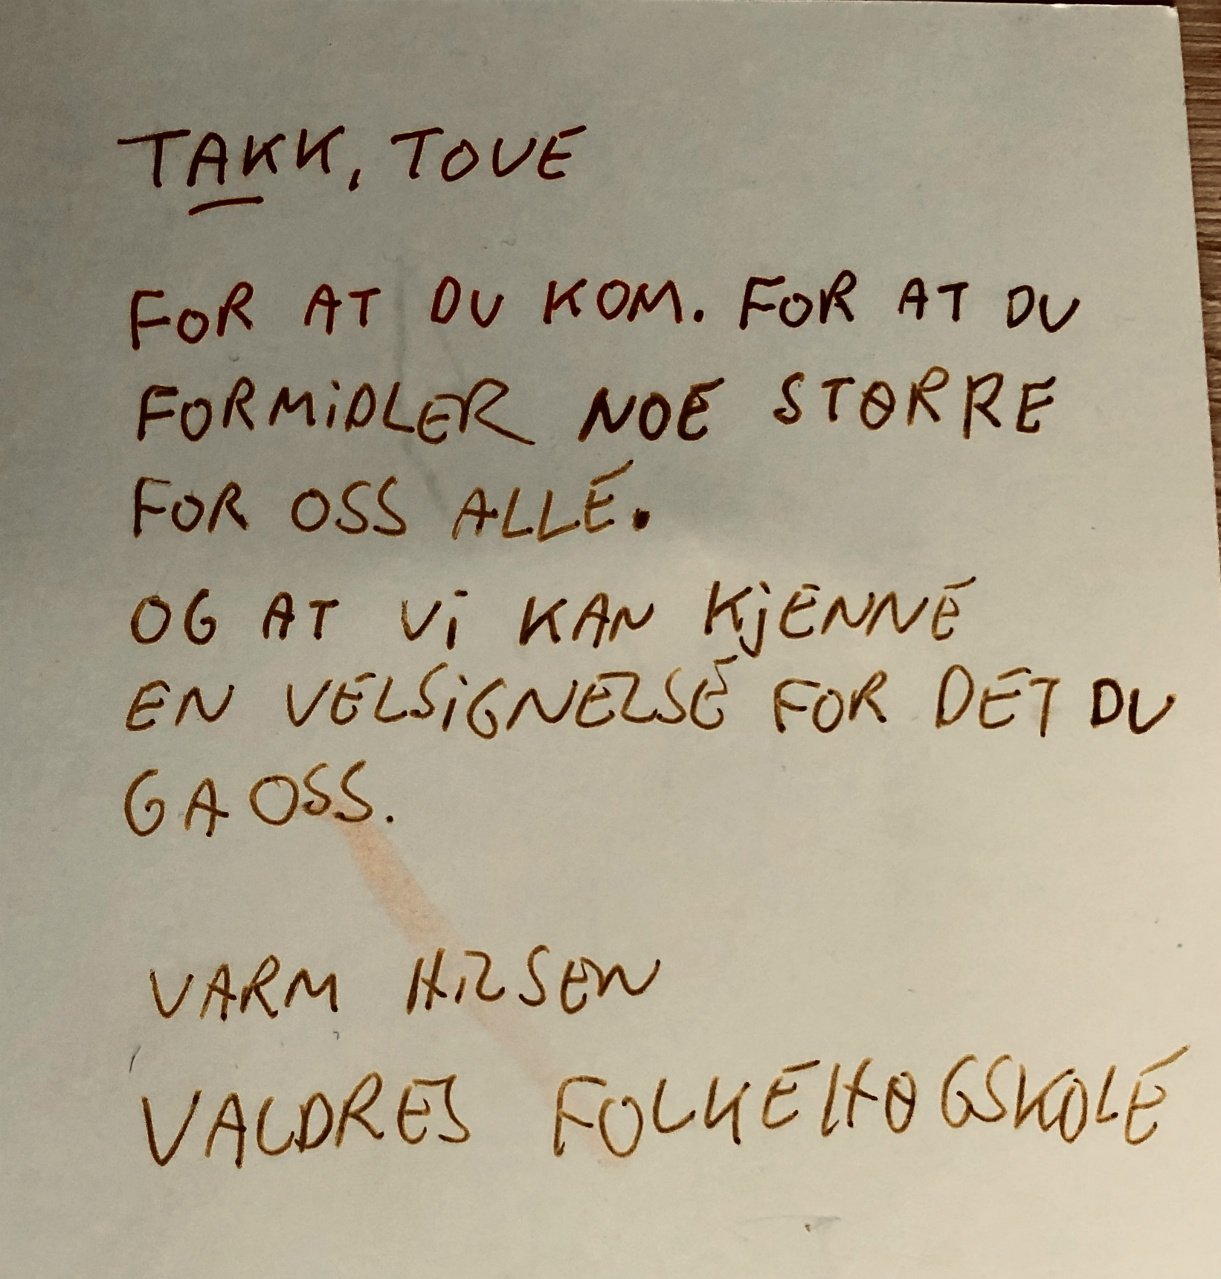 TAKK, TOVE
FOR AT DU KOM. FOR AT DU
FORMiDLER NOE STØRRE
FOR OSS ALLE.
OG AT Vi KAN KjENNE
EN VELSiGNELSE FOR DET DU
GA OSS.
VARM HiLSEN
VALDRES FOLKEHØGSKOLE